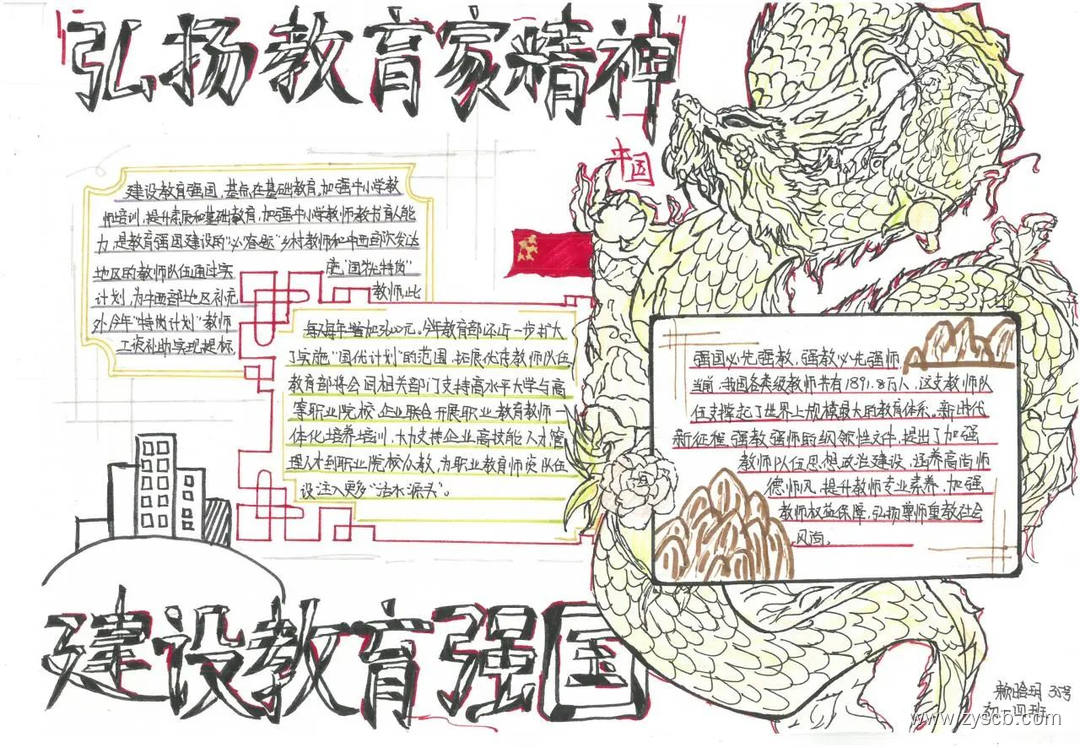 弘扬教育家精神
中国
建设教育强国,基点在基础教育,加强中小学教
师培训,提升素质和基础教育,加强中小学教师教书育人能
力,是教育强国建设的"必答题"乡村教师和中西部欠发达
地区的教师队伍通过实施"国优特岗"
计划,为中西部地区补充教师,此
外今年"特岗计划"教师
工资补助实现提标
每人每年增加3600元。今年教育部还进一步扩大
了实施"国优计划"的范围,拓展优秀教师队伍
教育部将会同相关部门支持高水平大学与高
等职业院校、企业联合开展职业教育教师一
体化培养培训,大力支持企业高技能人才管
理人才到职业院校任教,为职业教育师资队伍
设注入更多"活水源头"。
强国必先强教,强教必先强师
当前,我国各类级教师共有1891.8万人,这支教师队
伍支撑起了世界上规模最大的教育体系。新时代
新征程,强教强师的纲领性文件,提出了加强
教师队伍思想政治建设,涵养高尚师
德师风,提升教师专业素养,加强
教师权益保障,弘扬尊师重教社会
风尚。
建设教育强国
35号
初一四班
www.zyscb.com